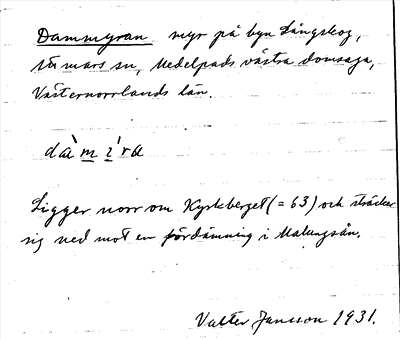 Dammyran myr på byn Långskog,
Stöde sn, Medelpads västra domsaga,
Västernorrlands län.
dàm ìra
Ligger norr om Kyrkberget (= 63) och sträcker
sig ned mot en fördämning i Malungsån.
Valter Jansson 1931.